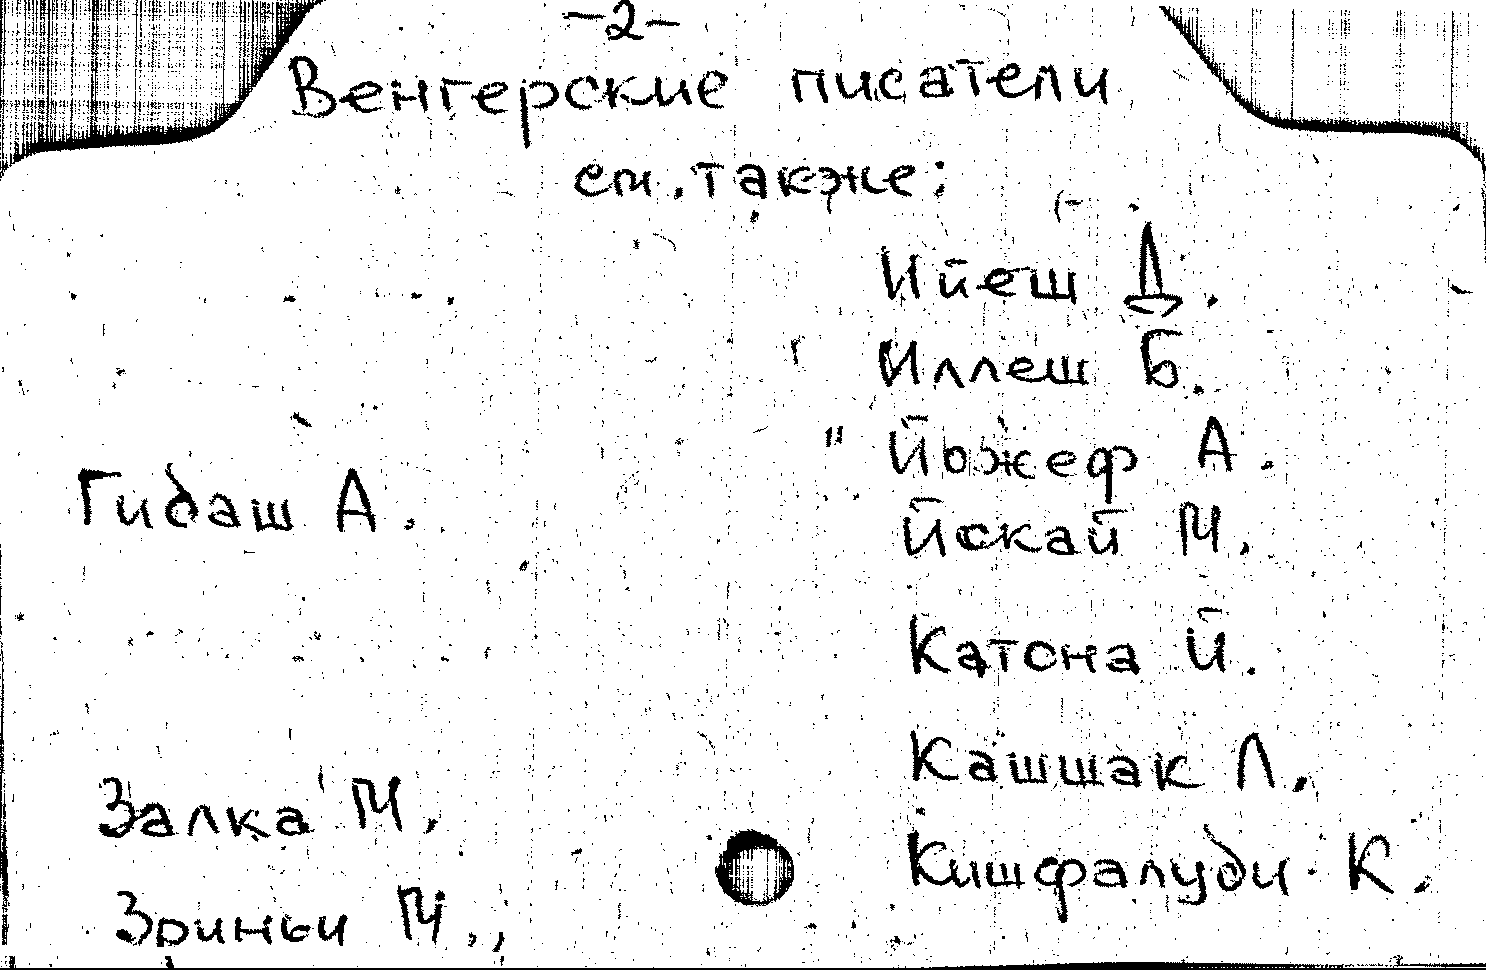 -2-
Венгерские писатели
см. также:
Гидаш А.
Залка М.
Зриньи М.,
Ийеш Д.
Иллеш Б.
" Йожеф А.
Йокай М.
Катона Й.
Кашшак Л.
Кишфалуди К.